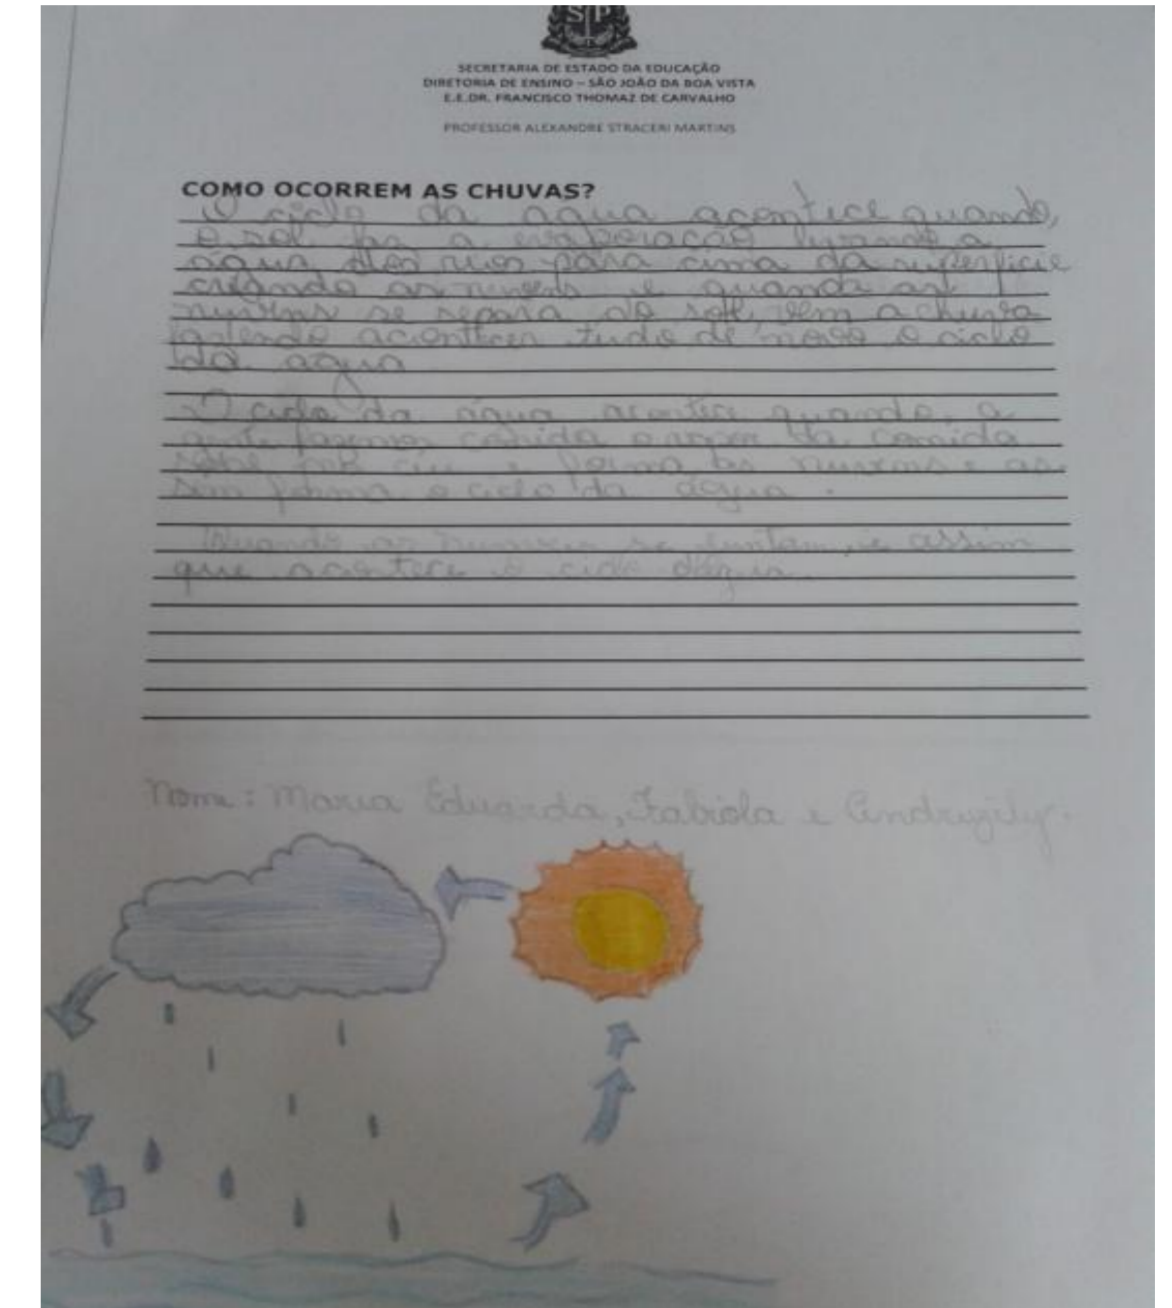 SP
SECRETARIA DE ESTADO DA EDUCAÇÃO
DIRETORIA DE ENSINO – SÃO JOÃO DA BOA VISTA
E.E.DR. FRANCISCO THOMAZ DE CARVALHO
PROFESSOR ALEXANDRE STRACERI MARTINS
COMO OCORREM AS CHUVAS?
O ciclo da agua acontece quando,
o sol faz a evaporação levando a
água dos rios para cima da superficie
criando as nuvens e quando as
nuvens se separa do sol, vem a chuva
acontecer tudo de novo o ciclo
da agua
O ciclo da água acontece quando a
gente fazemos comida o vapor da comida
sobe pro céu e forma as nuvens e as
sim forma o ciclo da água.
Quando as nuvens se juntam, e assim
que acontece o ciclo dágua.
Nome: Maria Eduarda, Fabiola e